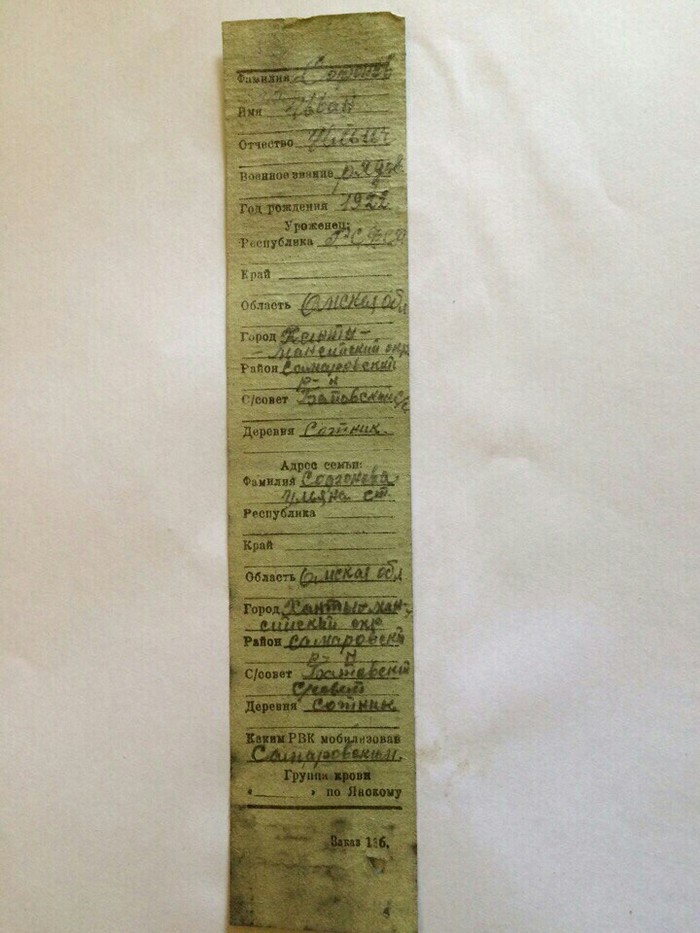 Фамилия
Имя Иван
Отчество Ильич
Военное звание рядов
Год рождения 1922
Уроженец:
Республика РСФСР
Край
Область Омская обл
Город Ханты-
-мансийский окр
Район Самаровский
р-н
С/совет Батовский с/с
Деревня Сотник.
Адрес семьи:
Фамилия Созонова
Ульяна ст
Республика
Край
Область Омская обл
Город Ханты-ман-
сийский окр
Район Самаровски
р-н
С/совет Батовский
Деревня сотник
Каким РВК мобилизован
Самаровским.
Группа крови
« » по Янскому
Заказ 136.